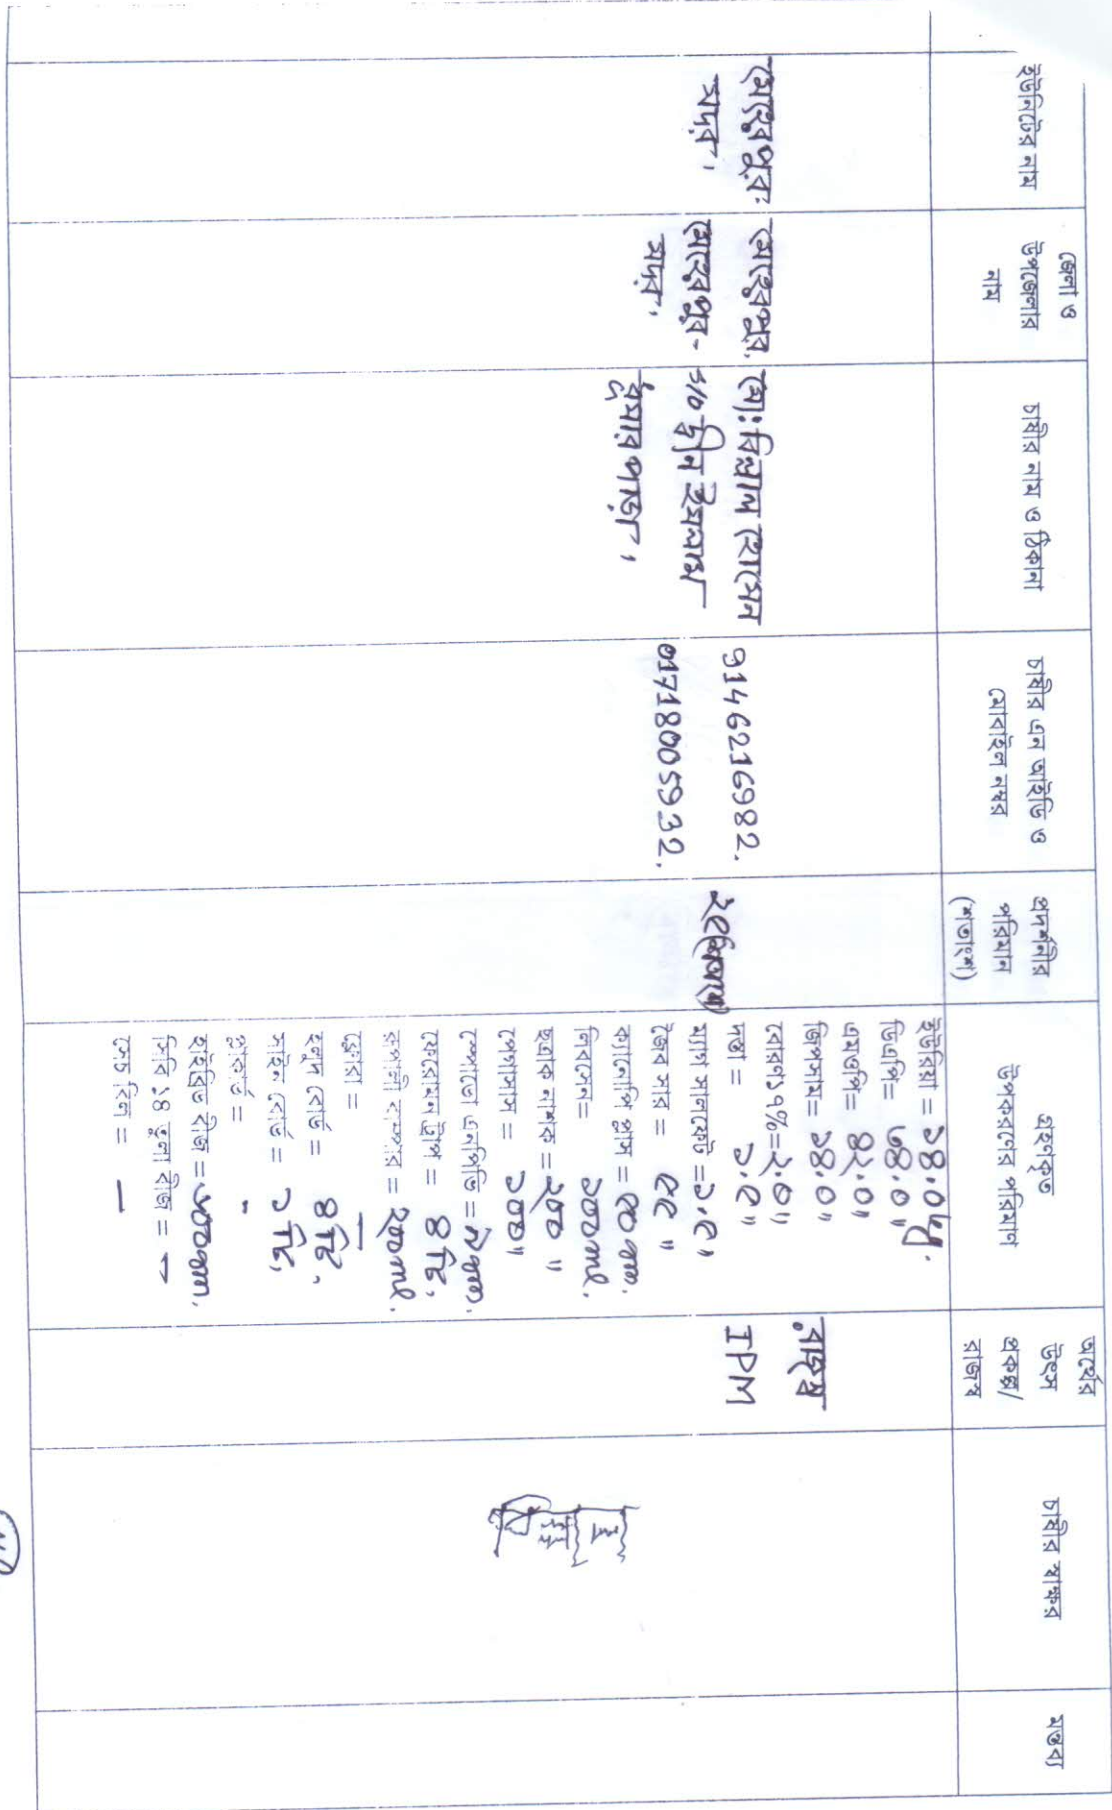 ইউনিটের নাম
জেলা ও
উপজেলার
নাম
চাষীর নাম ও ঠিকানা
চাষীর এন আইডি ও
মোবাইল নম্বর
প্রদর্শনীর
পরিমান
(শতাংশ)
গ্রহণকৃত
উপকরণের পরিমাণ
অর্থের
উৎস
প্রকল্প/
রাজস্ব
চাষীর স্বাক্ষর
মন্তব্য
মেহেরপুর
সদর।
মেহেরপুর,
মেহেরপুর-
সদর।
মো: বিল্লাল হোসেন
s/o দ্বীন ইসলাম
চুয়ার পাড়া,
9146216982.
01718005932.
২৫(শতাংশ)
ইউরিয়া = ১৪.০ kg.
ডিএপি= ৩৪.০ "
এমওপি= ৪২.০ "
জিপসাম= ১৪.০ "
বোরণ১৭%=২.০ "
দস্তা = ১.৫ "
ম্যাগ সালফেট =১.৫ "
জৈব সার = ৫৫ "
ক্যানোপি প্লাস = ৫০ gm.
লিবসেন= ১০০ ml.
ছত্রাক নাশক = ২০০ "
পেগাসাস = ১০০ "
স্পোডো এনপিভি = ৯ gm.
ফেরোমন ট্রাপ = ৪ টি,
রূপালী বাম্পার = ২০০ ml.
ফ্লোরা = —
হলুদ বোর্ড = ৪ টি,
সাইন বোর্ড = ১ টি,
প্লাকার্ড = -
হাইব্রিড বীজ = ৬০০ gm.
সিবি ১৪ তুলা বীজ = —
সেচ রিল = —
রাজস্ব
IPM